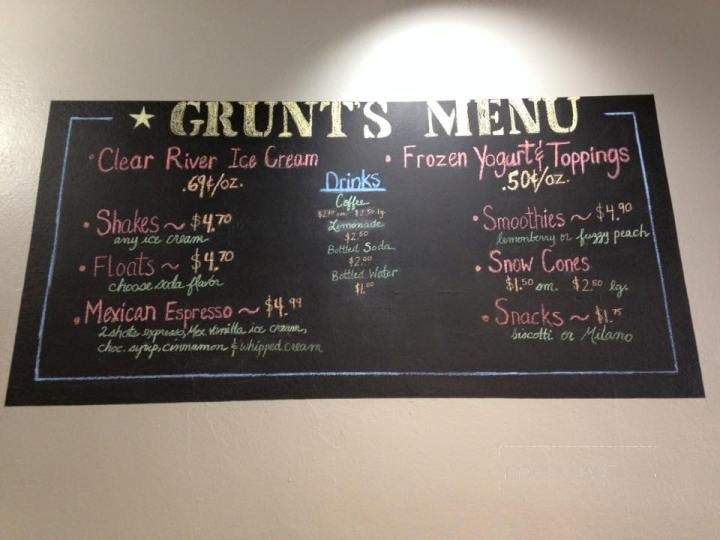 ★ GRUNT'S MENU
• Clear River Ice Cream
.69¢/oz.
• Shakes ~ $4.70
any ice cream
• Floats ~ $4.70
choose soda flavor
• Mexican Espresso ~ $4.99
2 shots espresso, Mex. vanilla ice cream,
choc. syrup, cinnamon & whipped cream
Drinks
Coffee
sm. $2.50 lg.
Lemonade
$2.50
Bottled Soda
$2.00
Bottled Water
$1.00
• Frozen Yogurt & Toppings
.50¢/oz.
• Smoothies ~ $4.90
lemonberry or fuzzy peach
• Snow Cones
$1.50 sm. $2.50 lg.
• Snacks ~ $1.75
biscotti or Milano